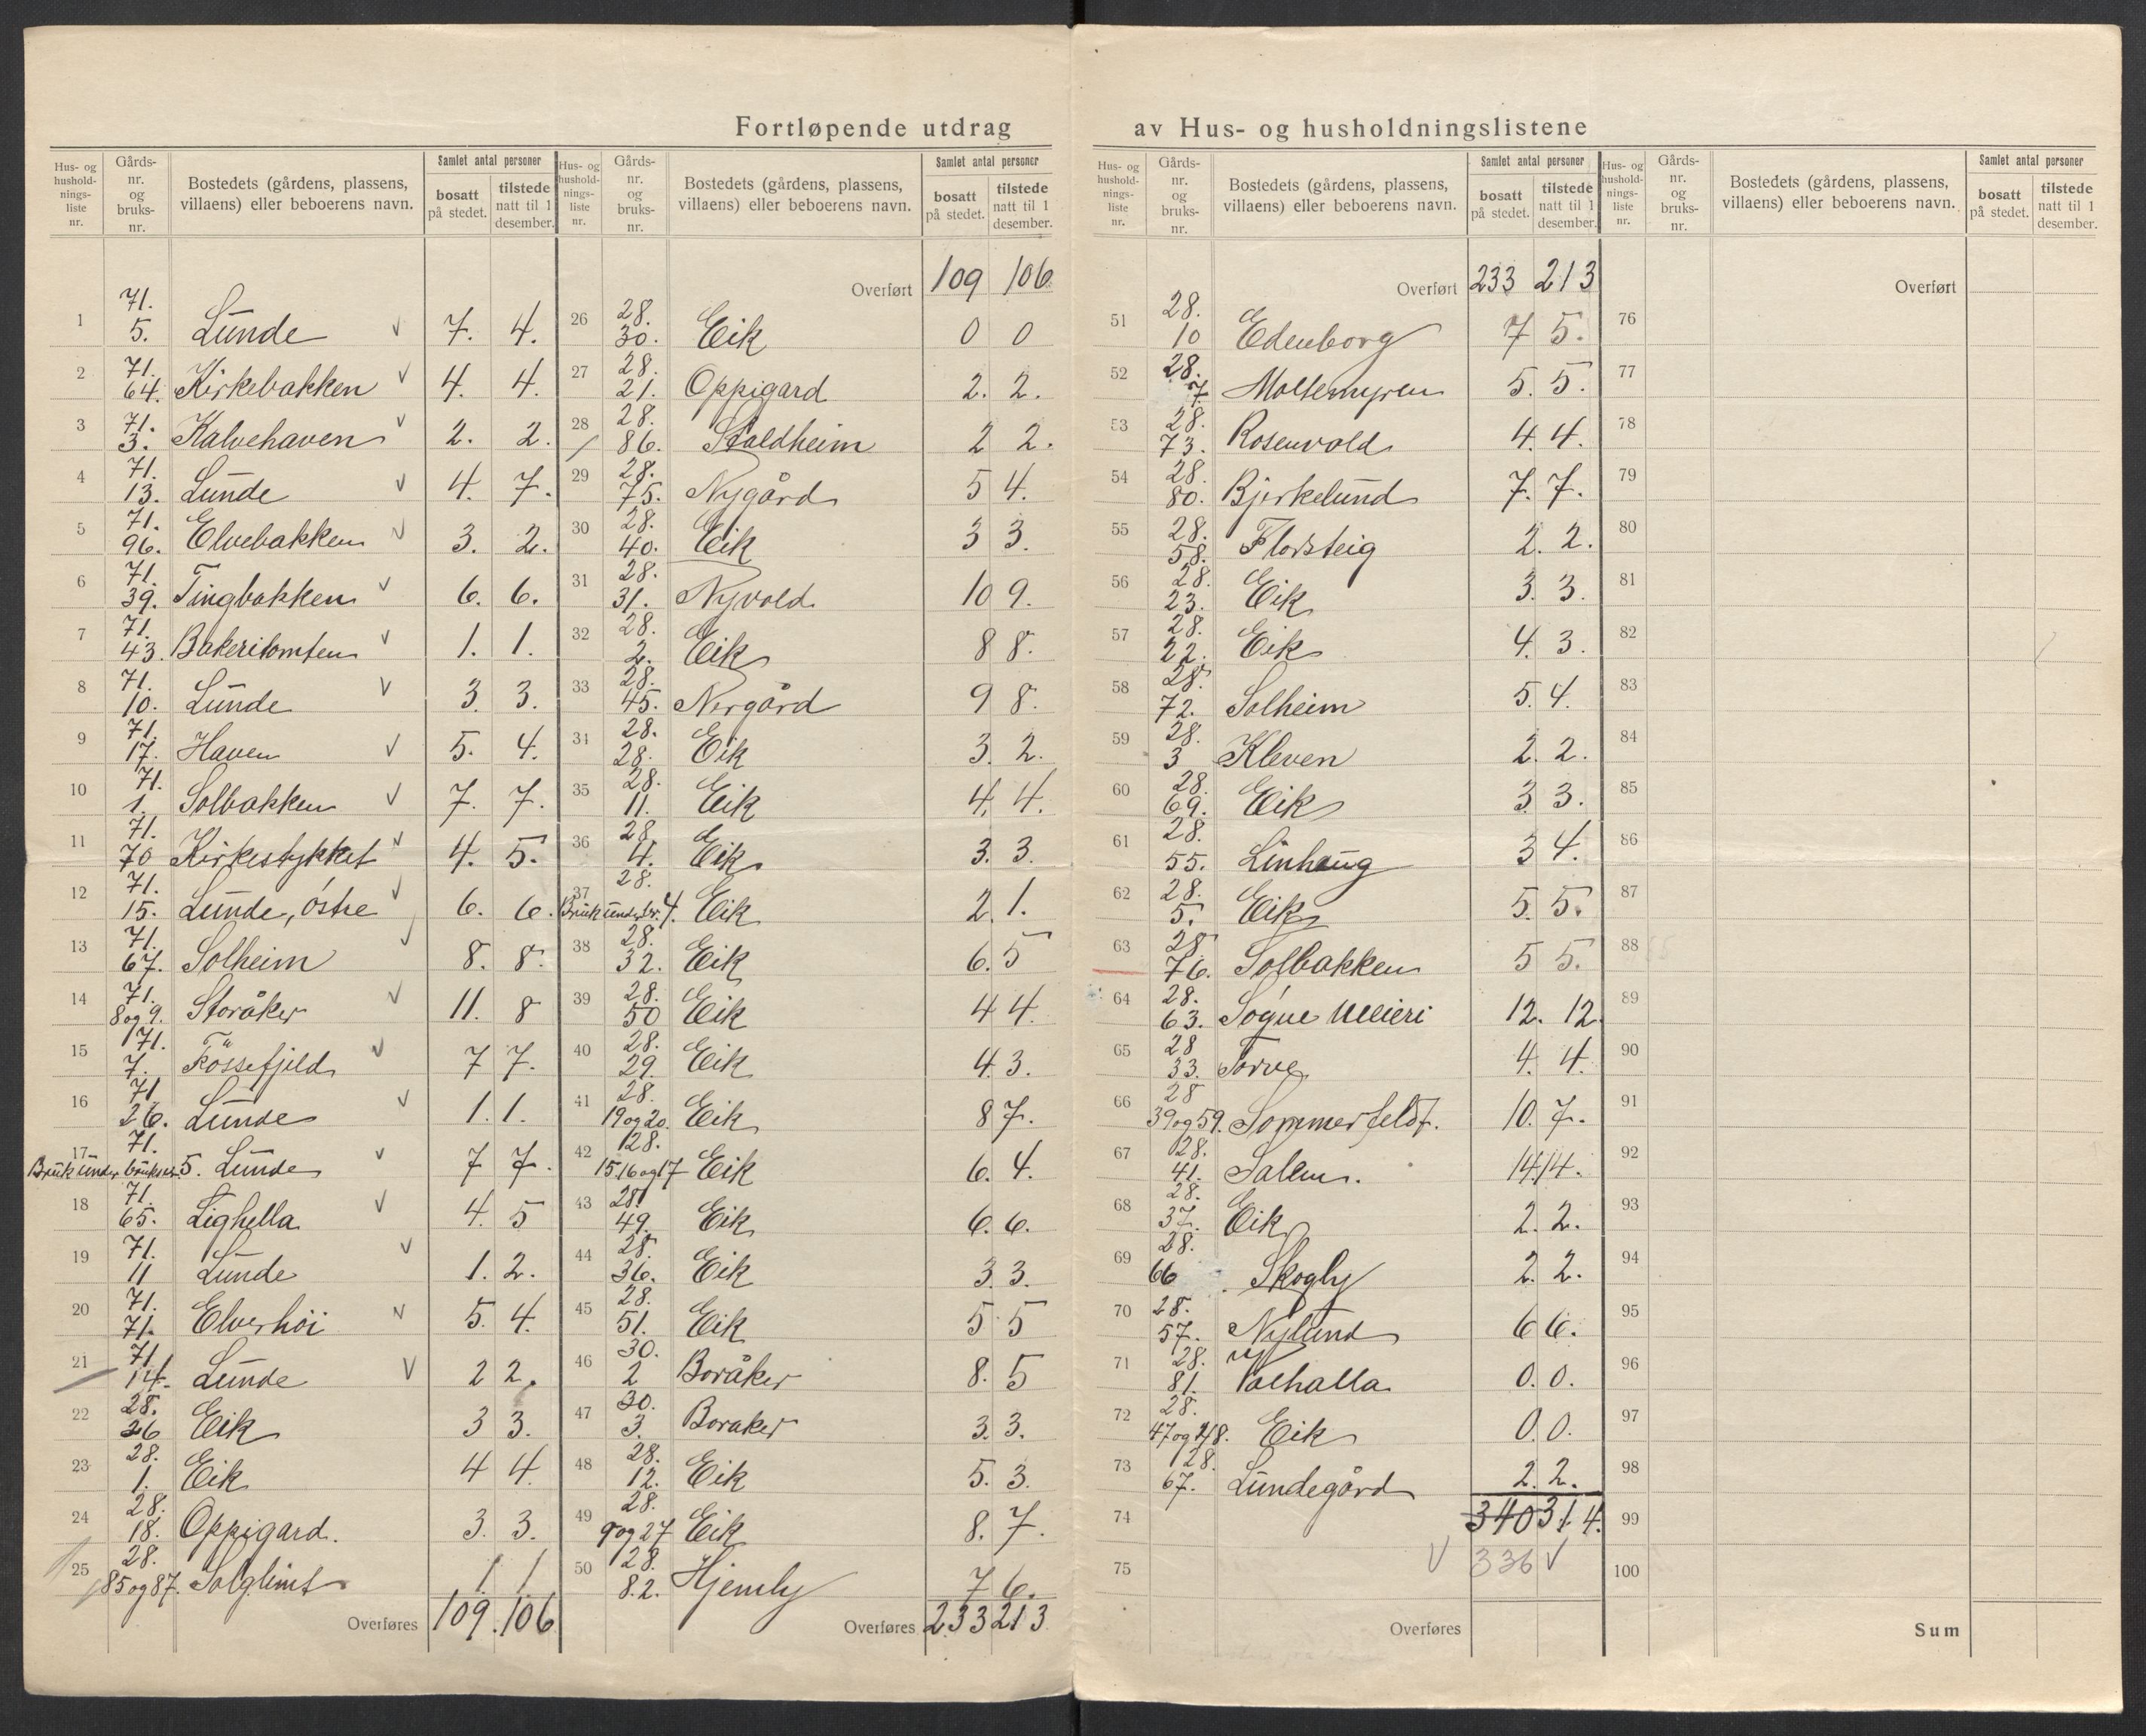 Fortløpende utdrag av Hus- og husholdningslistene
Hus- og hushold-nings-liste nr. | Gårds-nr. og bruks-nr. | Bostedets (gårdens, plassens, villaens) eller beboerens navn. | Samlet antal personer | bosatt på stedet. | tilstede natt til 1 desember.
1 71. 5. Lunde 7. 4.
2 71. 64. Kirkebakken 4. 4.
3 71. 3. Kalvehaven 2. 2.
4 71. 13. Lunde 4. 7.
5 71. 96. Elvebakken 3. 2.
6 71. 39. Tingbakken 6. 6.
7 71. 43. Bakeritomten 1. 1.
8 71. 10. Lunde 3. 3.
9 71. 17. Haven 5. 4.
10 71. 1. Solbakken 7. 7.
11 71. 70 Kirkestykket 4. 5.
12 71. 15. Lunde, østre 6. 6.
13 71. 67. Solheim 8. 8.
14 71. 8 og 9. Storåker 11. 8
15 71. 7. Fössefjeld 7 7.
16 71 26. Lunde 1. 1.
17 71. Bruk under bruksnr. 5. Lunde 7 7.
18 71. 65. Lighella 4. 5
19 71. 11 Lunde 1. 2.
20 71. 71. Elverhöi 5. 4.
21 71 14. Lunde 2 2.
22 28. 26 Eik 3 3.
23 28. 1. Eik 4 4.
24 28. 18. Oppigard. 3. 3.
25 28. 85 og 87. Solglimt 1 1
Overføres 109. 106
Hus- og hushold-nings-liste nr. | Gårds-nr. og bruks-nr. | Bostedets (gårdens, plassens, villaens) eller beboerens navn. | Samlet antal personer | bosatt på stedet. | tilstede natt til 1 desember.
Overført 109 106
26 28. 30. Eik 0 0
27 28. 21. Oppigard 2. 2.
28 28. 86. Staldheim 2 2.
29 28. 75. Nygård 5 4.
30 28. 40. Eik 3 3.
31 28. 31. Nyvold 10 9.
32 28. 2. Eik 8 8.
33 28. 45. Nergård 9 8.
34 28. 28. Eik 3. 2.
35 28. 11. Eik 4. 4.
36 28 4. Eik 3. 3.
37 28. Bruk under br. 4. Eik 2. 1.
38 28. 32. Eik 6. 5
39 28. 50 Eik 4 4.
40 28. 29. Eik 4. 3.
41 28. 19 og 20. Eik 8 7.
42 28. 15 16 og 17 Eik 6. 4.
43 28. 49. Eik 6. 6.
44 28. 36. Eik 3. 3.
45 28. 51. Eik 5 5
46 30. 2 Boråker 8. 5
47 30. 3. Boraker 3. 3.
48 28. 12. Eik 5. 3.
49 28. 9 og 27 Eik 8. 7.
50 28. 82. Hjemly 7 6.
Overføres 233 213
Hus- og hushold-nings-liste nr. | Gårds-nr. og bruks-nr. | Bostedets (gårdens, plassens, villaens) eller beboerens navn. | Samlet antal personer | bosatt på stedet. | tilstede natt til 1 desember.
Overført 233 213
51 28. 10 Edenborg 7 5.
52 28. 7. Moltemyren 5. 5.
53 28. 73. Rosenvold 4. 4.
54 28. 80. Bjerkelund 7. 7.
55 28. 58. Flodsteig 2. 2.
56 28. 23. Eik 3. 3.
57 28. 22. Eik 4. 3.
58 28. 72. Solheim 5. 4.
59 28. 3 Kleven 2. 2.
60 28. 69. Eik 3 3.
61 28. 55. Linhaug 3 4.
62 28. 5. Eik 5. 5.
63 28 76. Solbakken 5 5.
64 28. 63. Søgne Meieri 12. 12
65 28 33. Torve 4. 4.
66 28 39 og 59. Sommerfeldt. 10. 7.
67 28. 41. Salem. 14 14.
68 28. 37. Eik 2. 2.
69 28. 66 Skogly 2. 2.
70 28. 57. Nylund 6 6.
71 28. 81. Valhalla 0. 0.
72 28. 47 og 48. Eik 0. 0.
73 28. 67. Lundegård 2. 2.
74 340 314.
75 336
Overføres
Hus- og hushold-nings-liste nr. | Gårds-nr. og bruks-nr. | Bostedets (gårdens, plassens, villaens) eller beboerens navn. | Samlet antal personer | bosatt på stedet. | tilstede natt til 1 desember.
Overført
76
77
78
79
80
81
82
83
84
85
86
87
88
89
90
91
92
93
94
95
96
97
98
99
100
Sum